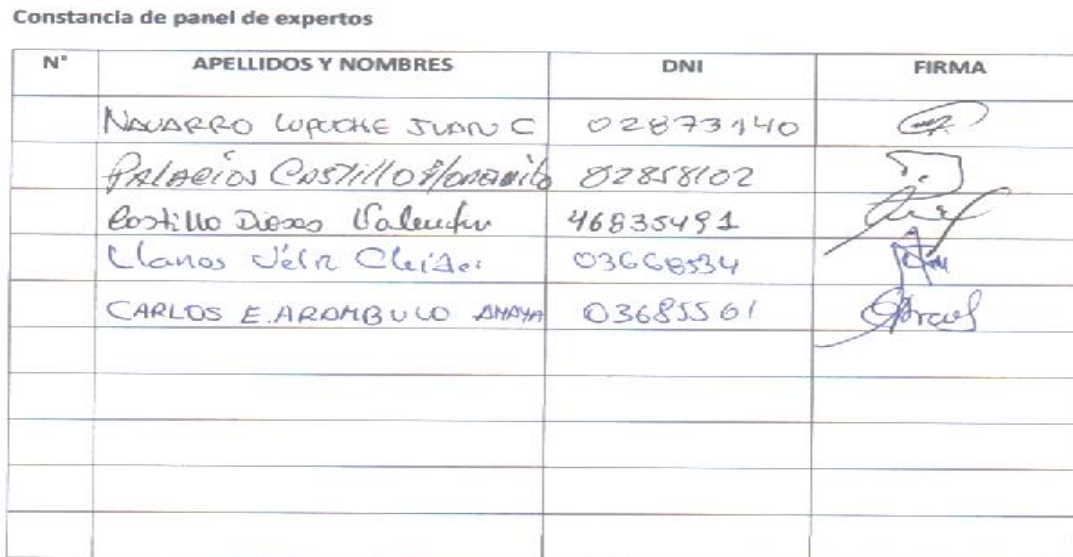 Constancia de panel de expertos
N° APELLIDOS Y NOMBRES DNI FIRMA
NAVARRO LUPUCHE JUAN C 02873140
PALACIOS CASTILLO 02858102
Castillo Dioses Valentin 46835491
Llanos Véliz 03668534
CARLOS E. AROMBULO AMAYA 03685561